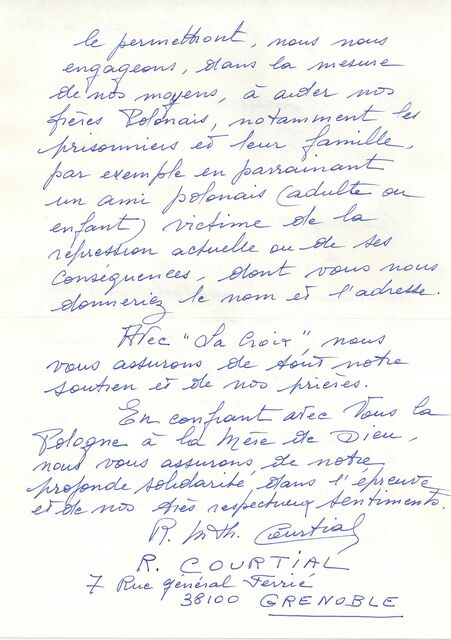 le permettront, nous nous
engageons, dans la mesure
de nos moyens, à aider nos
frères Polonais, notamment les
prisonniers et leur famille,
par exemple en parrainant
un ami polonais (adulte ou
enfant) victime de la
répression actuelle ou de ses
conséquences, dont vous nous
donneriez le nom et l'adresse.
Avec "La Croix", nous
vous assurons de tout notre
soutien et de nos prières.
En confiant avec Vous la
Pologne à la Mère de Dieu,
nous vous assurons, de notre
profonde solidarité, dans l'épreuve
et de nos très respectueux sentiments.
R. M.Th. Courtial
R. COURTIAL
7 Rue général Ferrié
38100 GRENOBLE